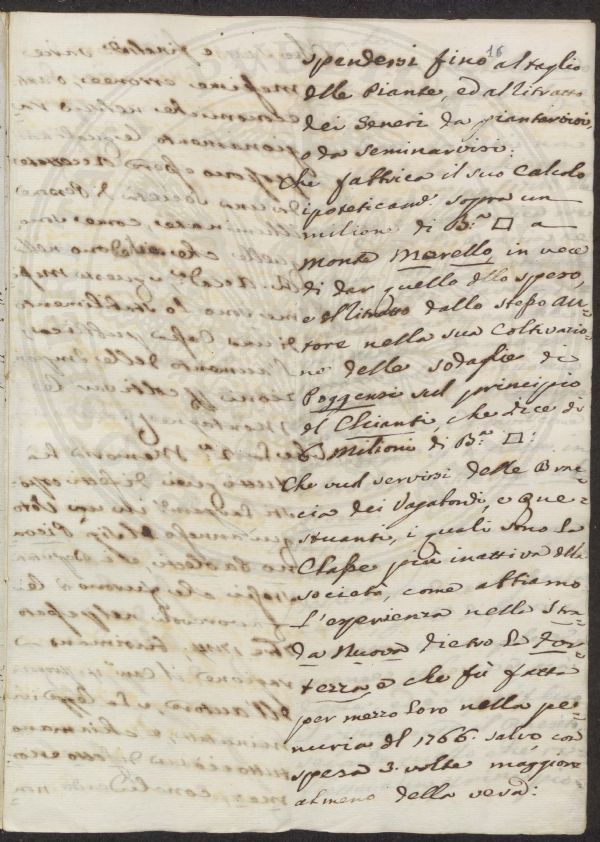 16
spendersi fino al taglio
delle Piante, ed al ritratto
dei Generi da piantarvisi,
o da seminarvisi:
che fabbrica il suo Calcolo
ipoteticamᵉ sopra un
milione di B.ᵃ □ a
Monte Morello in vece
di dar quello dello speso,
e del ritratto dallo stesso Au-
tore nella sua Coltivazio-
ne delle sodaglie di
Poggensi sul principio
del Chianti, che dice di
6 milioni di B.ᵃ □:
Che vuol servirsi delle Bra-
cia dei Vagabondi, e que-
stuanti, i quali sono la
Classe più inattiva della
società, come abbiamo
l'esperienza nella Stra-
da Nuova dietro la For-
tezza, che fù fatta
per mezzo loro nella pe-
nuria del 1766. salvo, con
spesa 3. volte maggiore
almeno della vera: